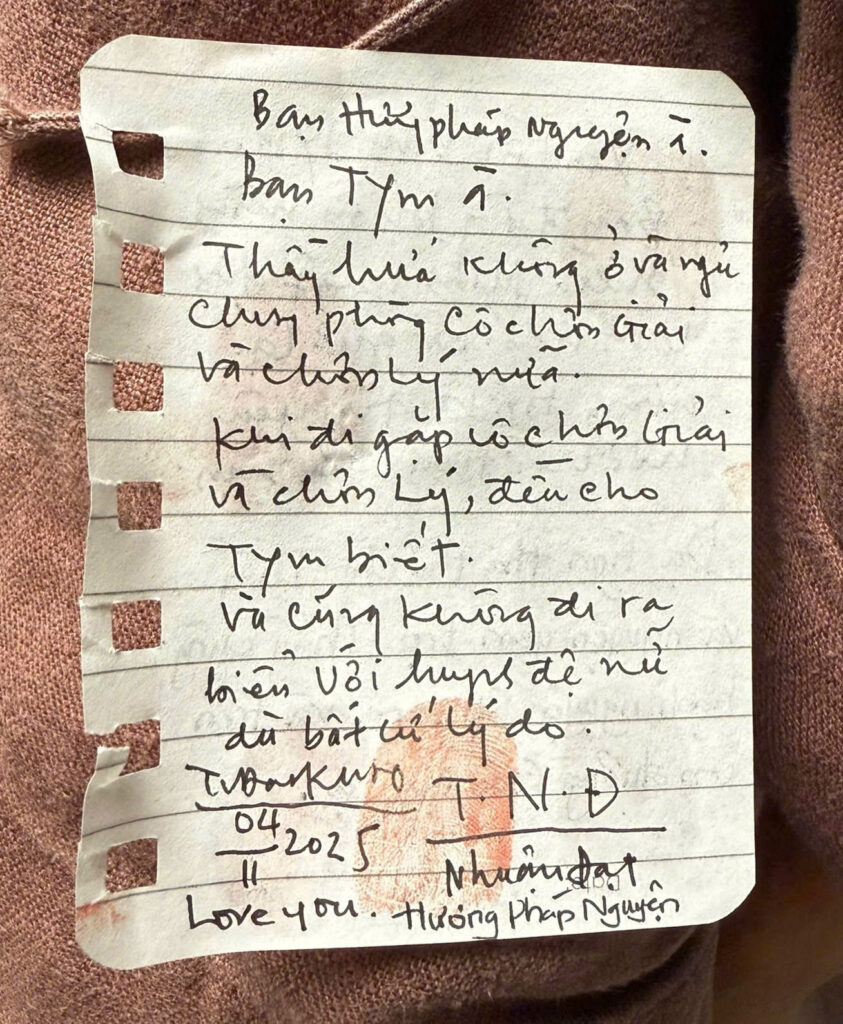 Bạn Hương pháp Nguyện à.
Bạn Tym à.
Thầy hứa không ở và ngủ
chung phòng cô chơn Giải
và chơn Lý nữa.
khi đi gặp cô chơn Giải
và chơn Lý, đều cho
Tym biết.
và cũng không đi ra
biển với huynh đệ nữ
dù bất cứ lý do.
T.N.Đ
04/11 2025
Nhuận đạt
Love you. Hương Pháp Nguyện